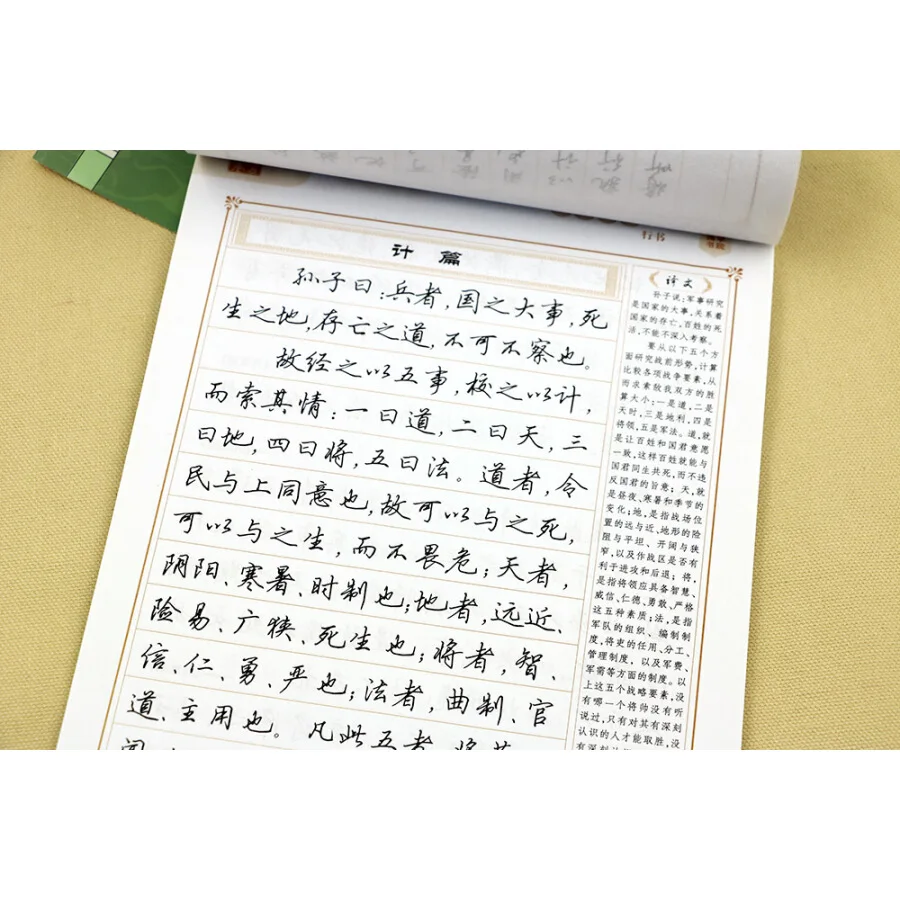 行书
计篇
孙子曰:兵者,国之大事,死
生之地,存亡之道,不可不察也。
故经之以五事,校之以计,
而索其情:一曰道,二曰天,三
曰地,四曰将,五曰法。道者,令
民与上同意也,故可以与之死,
可以与之生,而不畏危;天者,
阴阳、寒暑、时制也;地者,远近、
险易、广狭、死生也;将者,智、
信、仁、勇、严也;法者,曲制、官
道、主用也。凡此五者,将莫
闻
译文
孙子说:军事研究
是国家的大事,关系着
国家的存亡,百姓的死
活,不能不深入考察。
要从以下五个方
面研究战前形势,计算
比较各项战争要素,从
而求索敌我双方的胜
算大小:一是道,二是
天时,三是地利,四是
将领,五是军法。道,就
是让百姓和国君意愿
一致,这样百姓就能与
国君同生共死,而不违
反国君的旨意;天,就
是昼夜、寒暑和季节的
变化;地,是指战场位
置的远与近、地形的险
阻与平坦、开阔与狭
窄,以及作战区是否有
利于进攻和后退;将,
是指将领应具备智慧、
威信、仁德、勇敢、严格
这五种素质;法,是指
军队的组织、编制制
度,将吏的任用、分工、
管理制度,以及军费、
军需等方面的制度。以
上这五个战略要素,没
有哪一个将帅没有听
说过,只有对其有深刻
认识的人才能取胜,没
有深刻